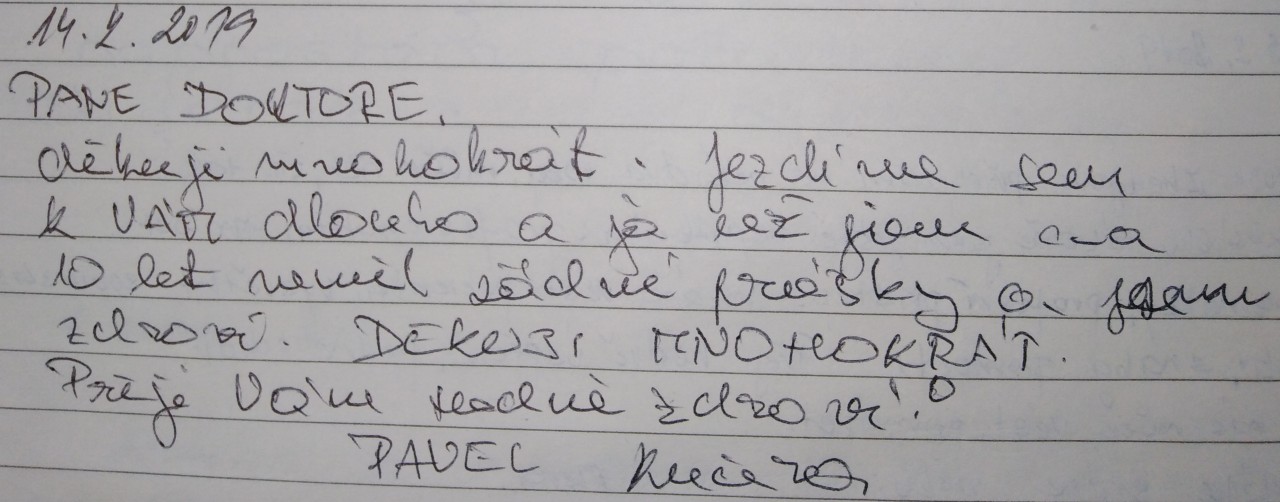 14.2.2019
PANE DOKTORE,
děkuji mnohokrát. Jezdíme sem
k VÁM dlouho a já už jsem cca
10 let neměl žádné prášky a jsem
zdravý. DĚKUJI MNOHOKRÁT.
Přeji Vám hodně zdraví!
PAVEL Kučera